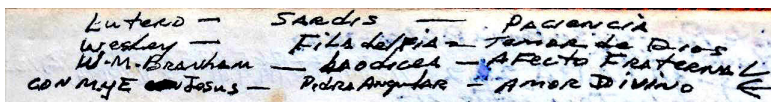 Lutero — SARdis — PACiENCiA
Wesley — FiLAdelFiA — Temor de Dios
W.M. BRANHAM — LAOdicea — AFECTO FRATERNAL
CON MyE Jesus — PiedRA ANgulAR — AMOR DiViNO